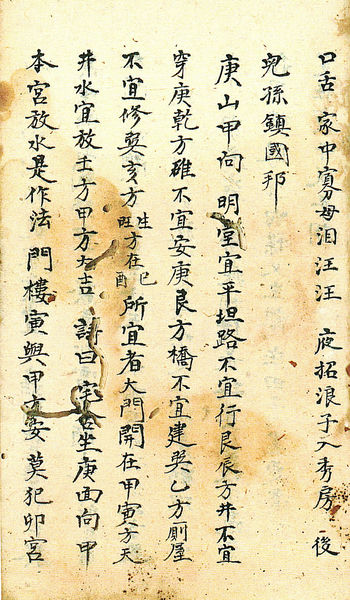 口舌 家中寡母泪汪汪 夜招浪子入秀房 後
兒孫鎮國邦
庚山甲向 明堂宜平坦路不宜行艮辰方井不宜
穿庚乾方碓不宜安庚艮方橋不宜建巽乙方厠屋
不宜修巽亥方 生旺方在巳酉 所宜者大門開在甲寅方天
井水宜放壬方甲方大吉 詩曰 宅舍坐庚面向甲
本宮放水是作法 門樓寅與甲方安 莫犯卯宮